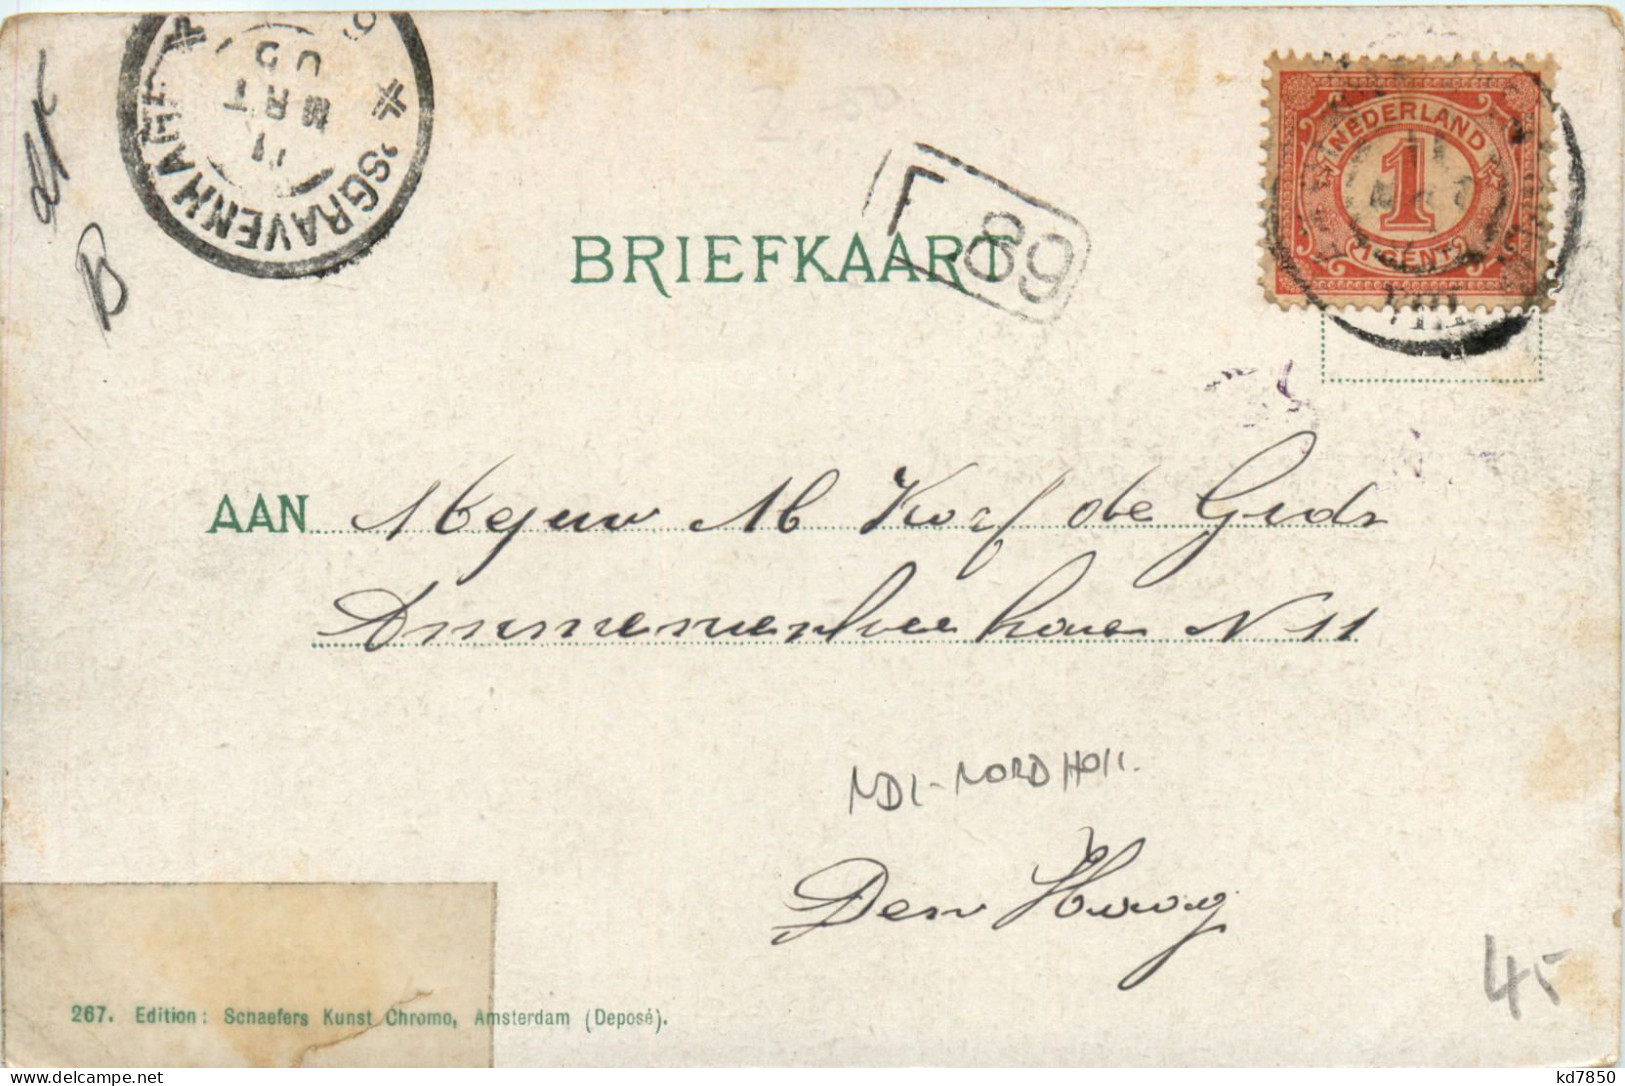 'SGRAVENHAGE
11
MRT
NEDERLAND
1
1 CENT
VIII
F 89
BRIEFKAART
B
AAN Mejuw M Korf de Gids
N 11
NDL-NORDHOLL.
Den Haag
45
267. Edition: Schaefers Kunst Chromo, Amsterdam (Deposé).
kd7850